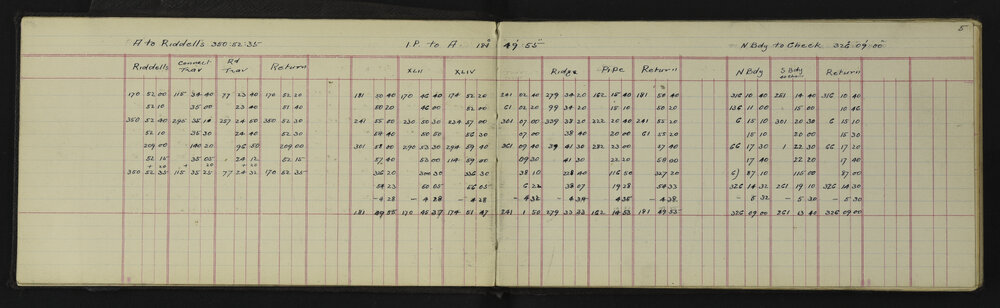 5
A to Riddells 350:52:35 1 P to A 181° 49':55" N Bdy to Check 326° 09' 00"
Riddells Connect Trav Rd Trav Return XLII XLIV Ridge Pipe Return N Bdy S Bdy Return
170 52 00 115 34 40 77 23 40 170 52 20 181 50 40 170 46 40 174 52 20 241 02 40 279 34 20 162 15 40 181 50 40 316 10 40 261 14 40 316 10 40
52 10 35 00 23 40 51 40 50 20 46 00 52 00 61 02 20 99 34 20 15 10 50 20 136 11 00 15 00 10 46
350 52 40 295 35 10 257 24 50 350 52 30 241 55 00 230 50 30 234 57 00 301 07 00 339 38 20 222 20 40 241 55 20 6 15 10 301 20 30 6 15 10
52 10 35 30 24 40 52 30 54 40 50 50 56 30 07 00 38 40 20 00 61 55 20 15 10 20 00 15 30
209 00 140 20 96 50 209 00 301 58 00 290 53 30 294 59 40 361 09 40 39 41 30 282 23 00 57 40 66 17 30 1 22 30 66 17 20
52 15 35 05 24 12 52 15 57 40 53 00 114 59 00 09 30 41 30 22 20 58 00 17 40 22 20 17 40
+ 20 + 20 + 20
350 52 35 115 35 25 77 24 32 170 52 35 336 20 300 30 336 30 38 10 228 40 116 50 327 20 6) 87 10 115 00 87 00
54 23 50 05 56 05 6 22 38 07 19 28 54 33 326 14 32 261 19 10 326 14 30
- 4 28 - 4 28 - 4 28 - 4 32 - 4 34 4 35 - 4 38 - 5 32 - 5 30 - 5 30
181 49 55 170 45 37 174 51 47 241 1 50 279 33 33 162 14 53 181 49 55 326 09 00 261 13 40 326 09 00